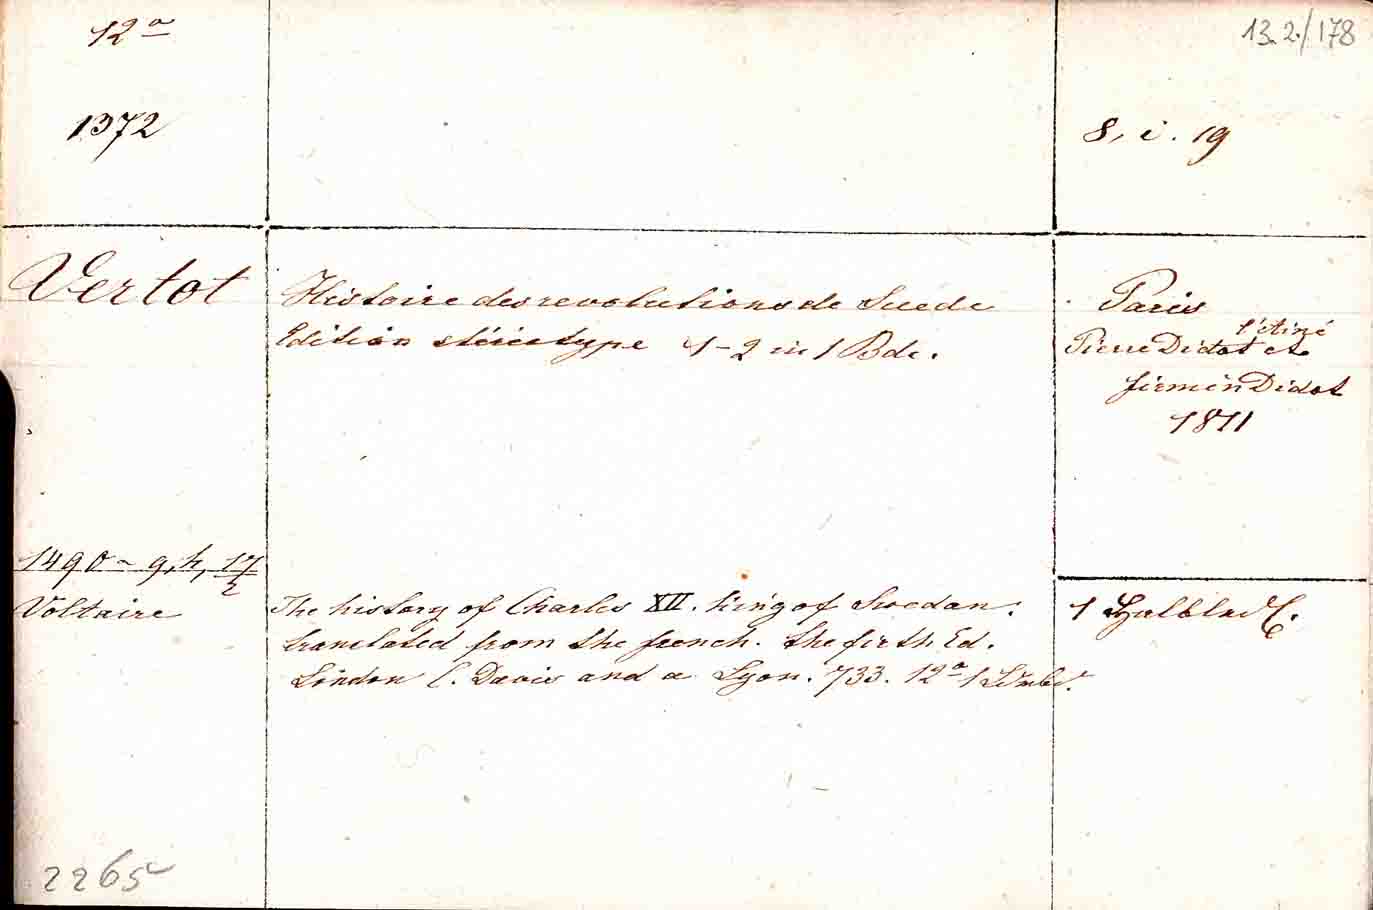 12°
13.2./178
1372
8, i. 19
Vertot
Histoire des revolutions de Suede
Edition stéréotype 1-2 in 1 Bde.
Paris
l'ainé
Pierre Didot et
firmin Didot
1811
1490 - g, h, 17/2
Voltaire
The history of Charles XII. King of Swedan.
translated from the french. the fifth Ed.
London C. Davis and a Lyon. 733. 12° 1
1
2265